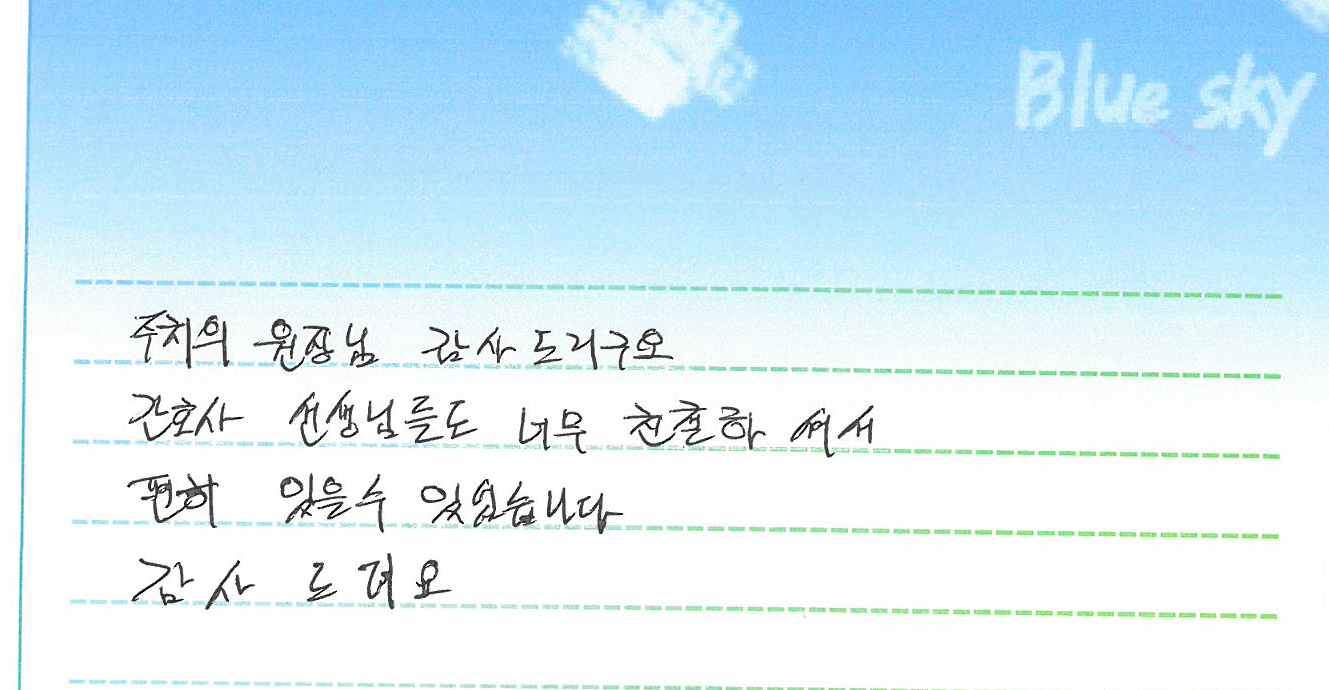 Blue sky
주치의 원장님 감사 드리구요
간호사 선생님들도 너무 친절하셔서
편히 있을수 있었습니다
감사 드려요